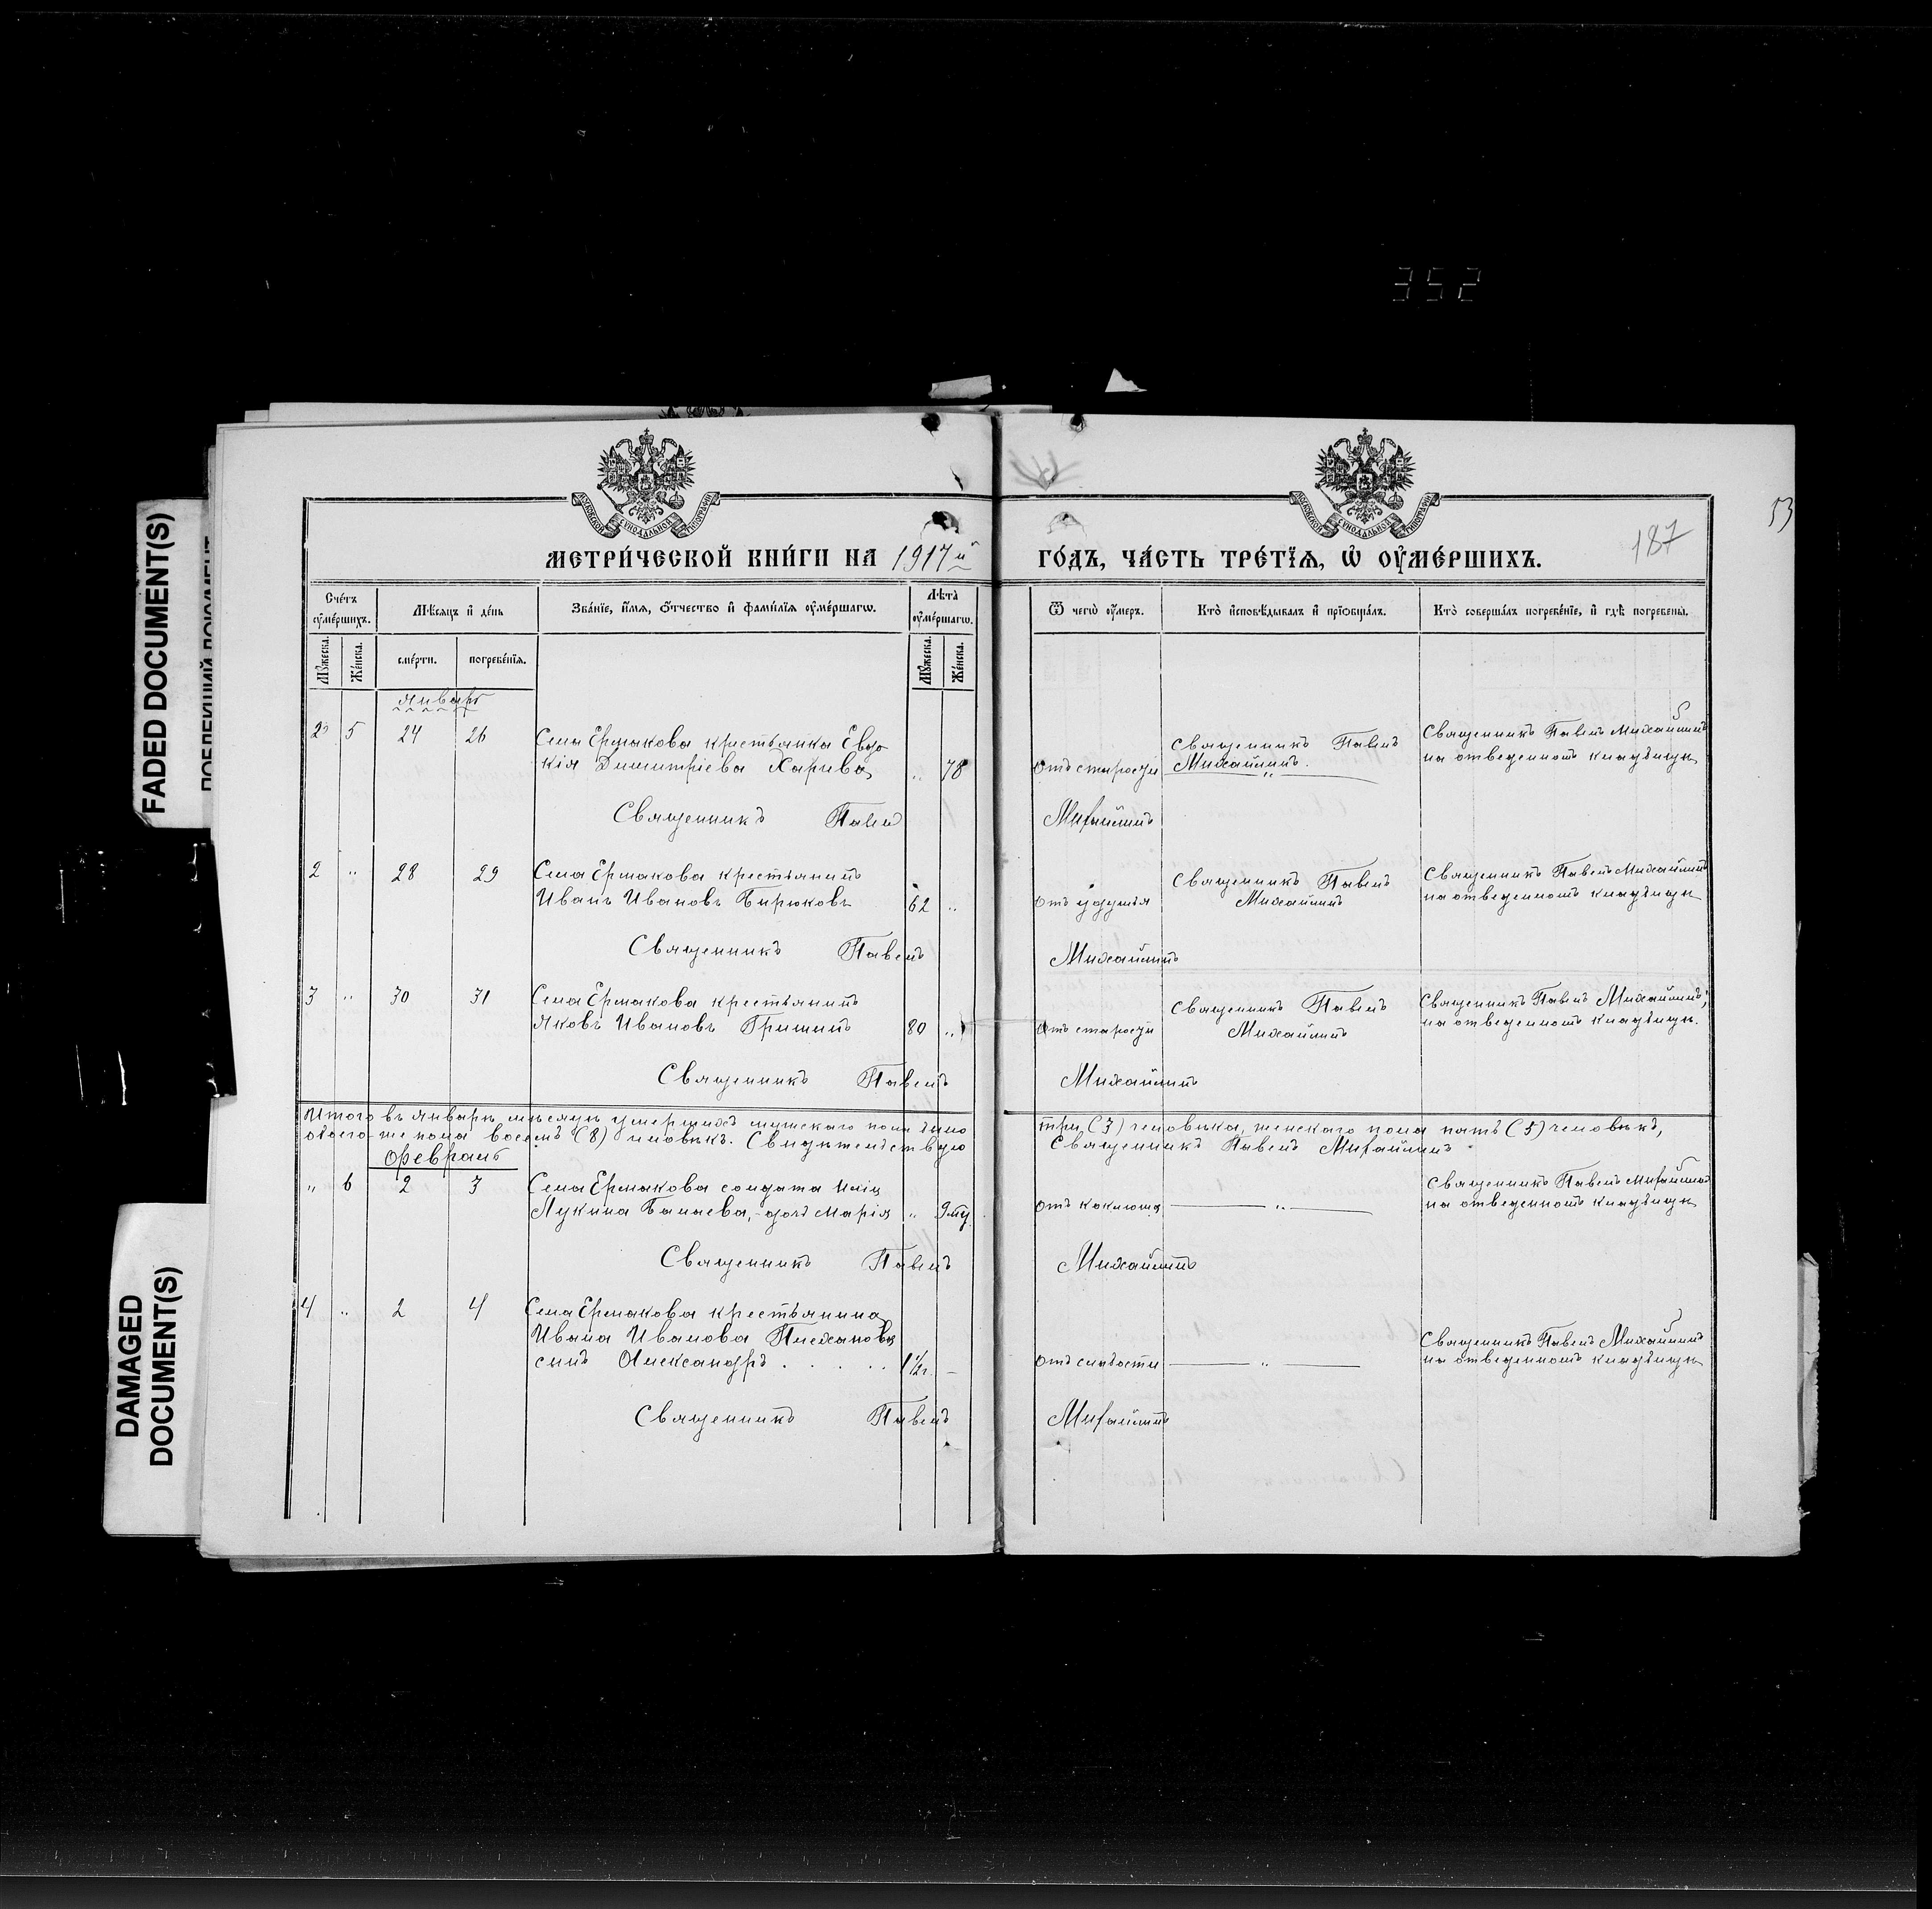 352
FADED DOCUMENT(S)
DAMAGED
DOCUMENT(S)
53
187
МЕТРИ́ЧЕСКОЙ КНИ́ГИ НА 1917й ГО́ДЪ, ЧА́СТЬ ТРЕ́ТЇѦ, Ѡ҆ ОУ҆МЕ́РШИХЪ.
Сче́тъ оу҆ме́ршихъ.
Мѣ́сяцъ и҆ де́нь
Зва́нїе, и҆́мя, ѻ҆́тчество и҆ фами́лїя оу҆ме́ршагѡ.
Лѣ́та оу҆ме́ршагѡ.
Ѿ чегѡ̀ оу҆́меръ.
Кто̀ и҆сповѣ́дывалъ и҆ прїѡбща́лъ.
Кто̀ соверша́лъ погребе́нїе, и҆ гдѣ̀ погребены̀.
Мꙋ́жеска. Же́нска. сме́рти. погребе́нїя. Мꙋ́жеска. Же́нска.
Январь
5 24 26 Села Ермакова крестьянка Евдо-
кія Димитріева Харива „ 78 отъ старости Священникъ Павелъ Михайлинъ. Священникъ Павелъ Михайлинъ на отведенномъ кладбищѣ
Священникъ Павелъ Михайлинъ
2 „ 28 29 Села Ермакова крестьянинъ
Иванъ Ивановъ Бирюковъ 62 „ отъ удушья Священникъ Павелъ Михайлинъ Священникъ Павелъ Михайлинъ на отведенномъ кладбищѣ
Священникъ Павелъ Михайлинъ
3 „ 30 31 Села Ермакова крестьянинъ
Яковъ Ивановъ Гришинъ 80 „ отъ старости Священникъ Павелъ Михайлинъ Священникъ Павелъ Михайлинъ, на отведенномъ кладбищѣ.
Священникъ Павелъ Михайлинъ
Итого въ январѣ мѣсяцѣ умершихъ мужскаго пола было три (3) человѣка, женскаго пола пять (5) человѣкъ,
обоего-же пола восемь (8) человѣкъ. Свидѣтельствую Священникъ Павелъ Михайлинъ
Февраль
„ 6 2 3 Села Ермакова солдата Иліи
Лукина Балаева, дочь Марія „ 9 мц. отъ коклюша „ Священникъ Павелъ Михайлинъ на отведенномъ кладбищѣ
Священникъ Павелъ Михайлинъ
4 „ 2 4 Села Ермакова крестьянина
Ивана Иванова Плеханова
сынъ Александръ . . . . . 1 1/2 г. – отъ слабости „ Священникъ Павелъ Михайлинъ на отведенномъ кладбищѣ
Священникъ Павелъ Михайлинъ